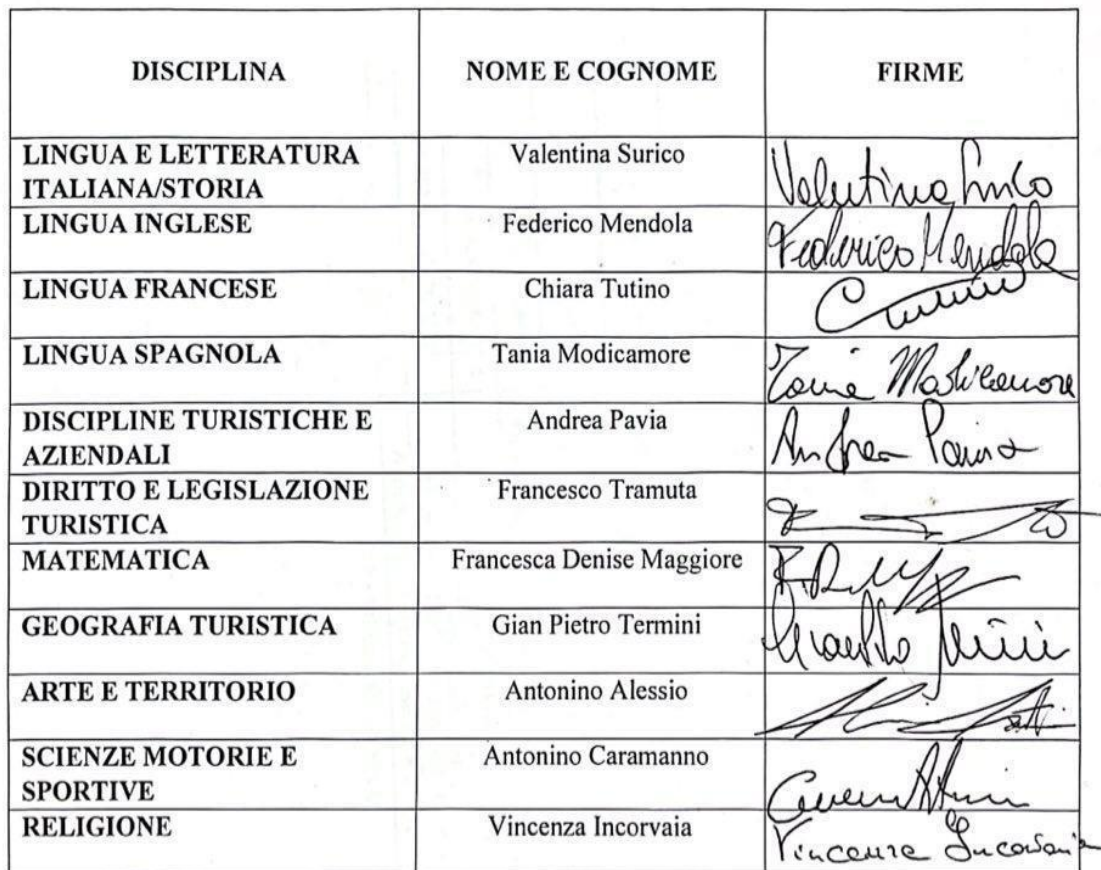 DISCIPLINA NOME E COGNOME FIRME
LINGUA E LETTERATURA ITALIANA/STORIA Valentina Surico Valentina Surico
LINGUA INGLESE Federico Mendola Federico Mendola
LINGUA FRANCESE Chiara Tutino
LINGUA SPAGNOLA Tania Modicamore Tania Modicamore
DISCIPLINE TURISTICHE E AZIENDALI Andrea Pavia Andrea Pavia
DIRITTO E LEGISLAZIONE TURISTICA Francesco Tramuta
MATEMATICA Francesca Denise Maggiore
GEOGRAFIA TURISTICA Gian Pietro Termini
ARTE E TERRITORIO Antonino Alessio
SCIENZE MOTORIE E SPORTIVE Antonino Caramanno
RELIGIONE Vincenza Incorvaia Vincenza Incorvaia